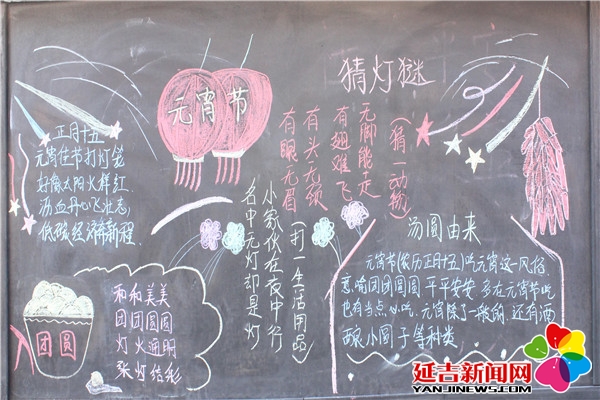 元宵节
猜灯谜
正月十五
元宵佳节打灯笼
好像太阳火样红
沥血丹心飞壮志
低碳经济新程
有眼无眉
有头无颈
有翅难飞
无脚能走
(猜一动物)
名中元灯却是灯
小家伙在夜中行
(打一生活用品)
汤圆由来
元宵节(农历正月十五)吃元宵这一风俗
意喻团团圆圆 平平安安 多在元宵节吃
也有当点心吃。元宵除了一般的,还有酒
酿小圆子等种类
团圆
和和美美
团团圆圆
灯火通明
张灯结彩
延吉新闻网
YANJINEWS.COM